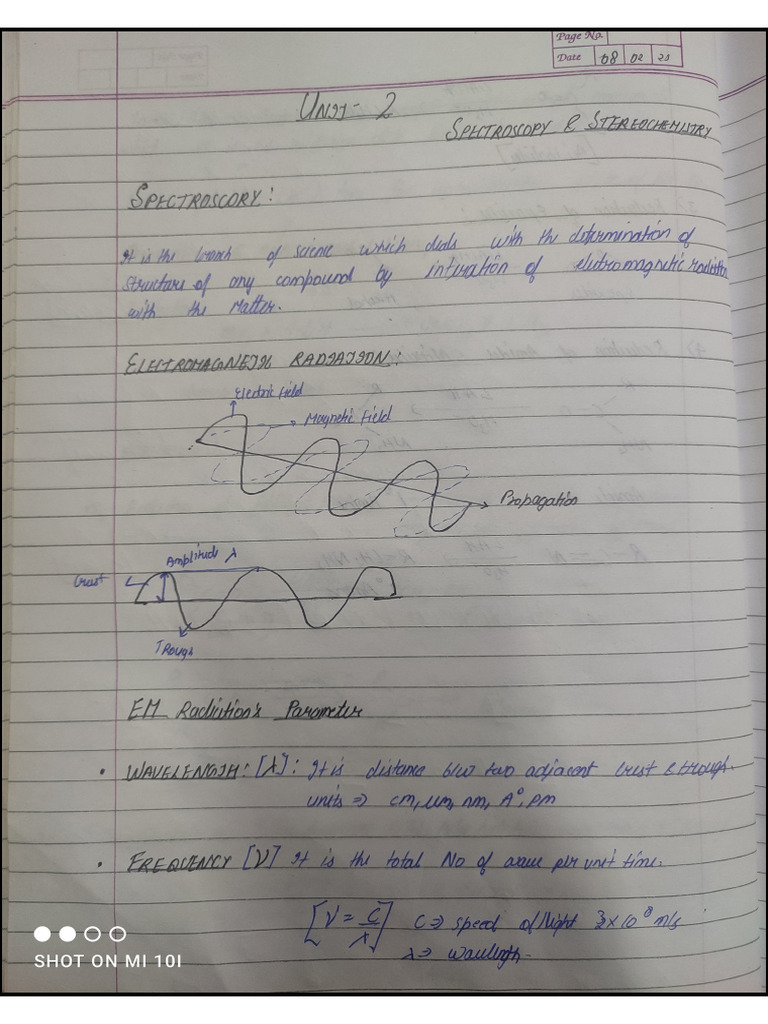 Page No.
Date 08 02 23
UNIT-2
SPECTROSCOPY & STEREOCHEMISTRY
SPECTROSCOPY:
It is the branch of science which deals with the determination of
structure of any compound by interation of eletromagnetic radiation
with the Matter.
ELECTROMAGNETIC RADIATION:
Electric field
Magnetic field
Propagation
Amplitude λ
Crust
TRough
EM Radiation's Parameter
• WAVELENGTH: [λ]: It is distance b/w two adjacent Crust & trough.
units => cm, um, nm, A°, pm
• FREQUENCY [ν] It is the total No of wave per unit time.
[ν = C/λ] C => speed of light 3×10⁸ m/s
λ => wavelength.
SHOT ON MI 10I